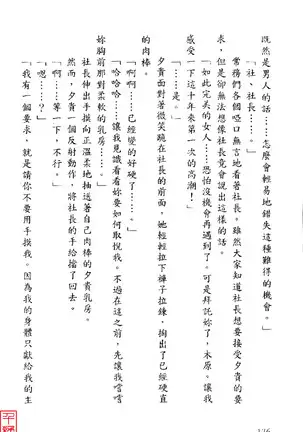 既然是男人的話……怎麼會輕易地錯失這種難得的機會。」
「社、社長……。」
常務們各個啞口無言地看著社長。雖然大家知道社長想要接受夕貴的要
求，但是卻無法想像社長竟然會說出這樣的話。
「如此完美的女人……恐怕沒機會再遇到了。可是拜託妳了，木原。讓我
感受一下這十年來第一次的高潮！」
「……是。」
夕貴面對著微笑跪在社長的前面，她輕輕拉下褲子拉鍊，掏出了已經硬直
的肉棒。
「啊……已經變的好硬了……。」
「哈哈哈……讓我見識看看妳要如何取悅我。不過在這之前，先讓我嚐嚐
妳胸前那對柔軟的乳房……。」
社長伸出手摸向正溫柔地抽送著自己肉棒的夕貴乳房。
然而，夕貴一個反射動作，將社長的手給擋了回去。
「啊……等一下，不行。」
「嗯……？」
「我有一個要求，就是請你不要用手摸我。因為我的身體只獻給我的主